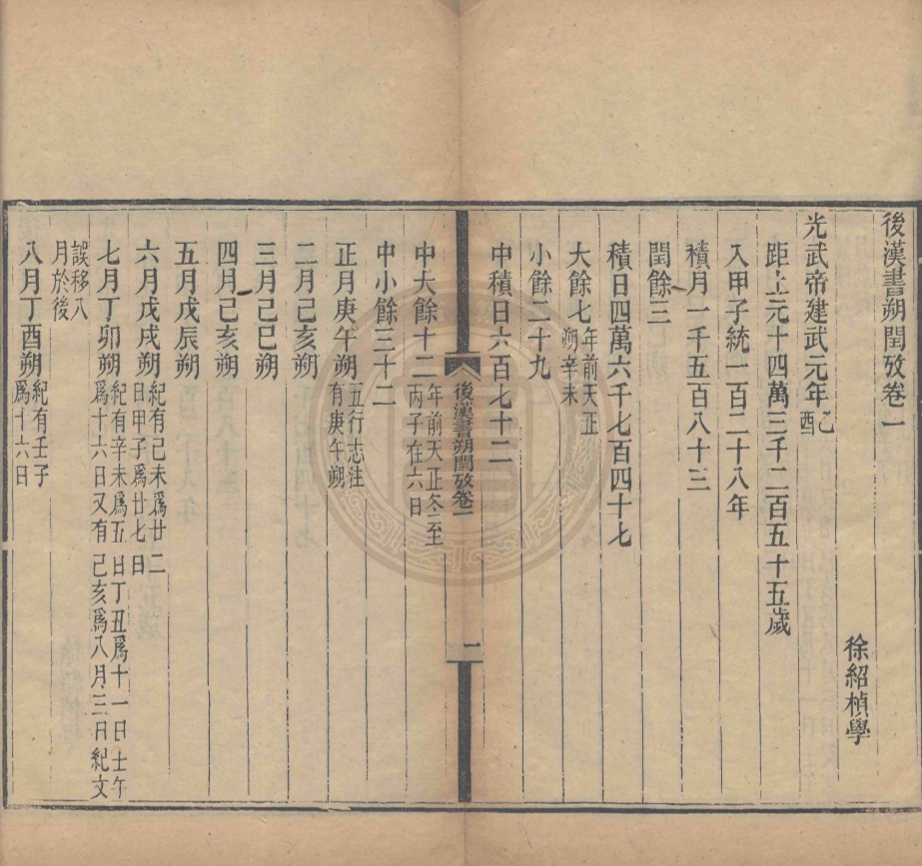 後漢書朔閏攷卷一
徐紹楨學
光武帝建武元年乙酉
距上元十四萬三千二百五十五歲
入甲子統一百二十八年
積月一千五百八十三
閏餘三
積日四萬六千七百四十七
大餘七年前天正朔辛未
小餘二十九
中積日六百七十二
後漢書朔閏攷卷一
一
中大餘十二年前天正冬至丙子在六日
中小餘三十二
正月庚午朔五行志注有庚午朔
二月己亥朔
三月己巳朔
四月己亥朔
五月戊辰朔
六月戊戌朔紀有己未爲廿二日甲子爲廿七日
七月丁卯朔紀有辛未爲五日丁丑爲十一日壬午爲十六日又有己亥爲八月三日紀文
誤移八月於後
八月丁酉朔紀有壬子爲十六日